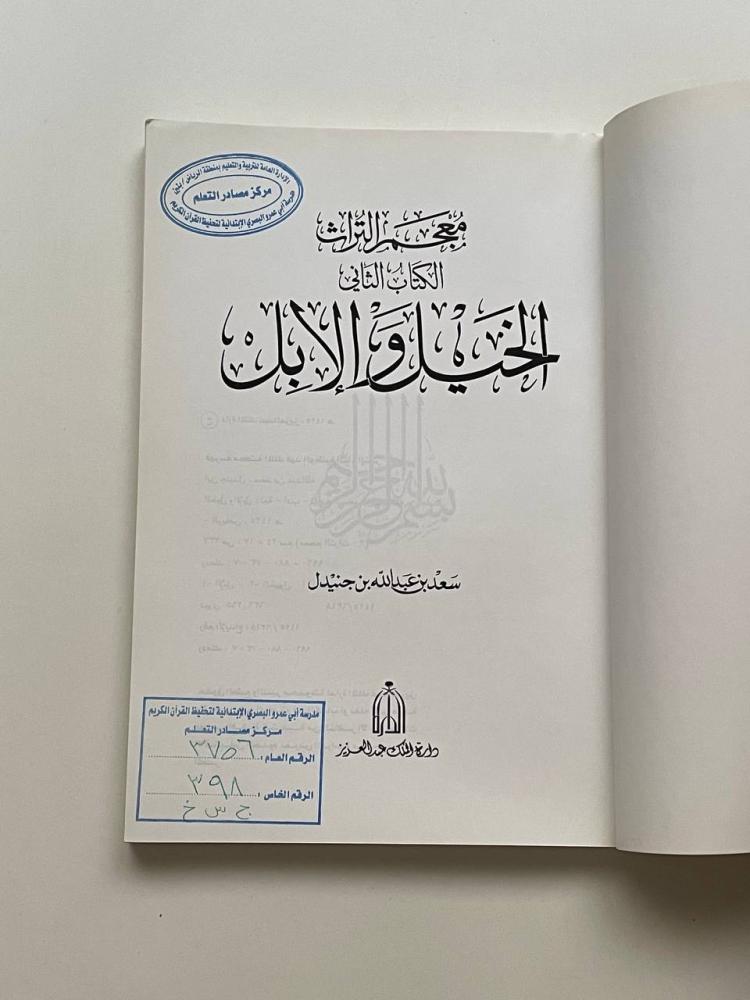 الإدارة العامة للتربية والتعليم بمنطقة الرياض / بنين
مركز مصادر التعلم
مدرسة أبي عمرو البصري الإبتدائية لتحفيظ القرآن الكريم
مُعْجَم التُّراث
الكتابُ الثاني
الخَيْل وَالإبِلْ
سَعْد بن عَبدالله بن جنيدل
دارة الملك عبدالعزيز
مدرسة أبي عمرو البصري الإبتدائية لتحفيظ القرآن الكريم
مركز مصادر التعلم
الرقم العام : ٣٧٥٦
الرقم الخاص : ٣٩٨
ج س خ